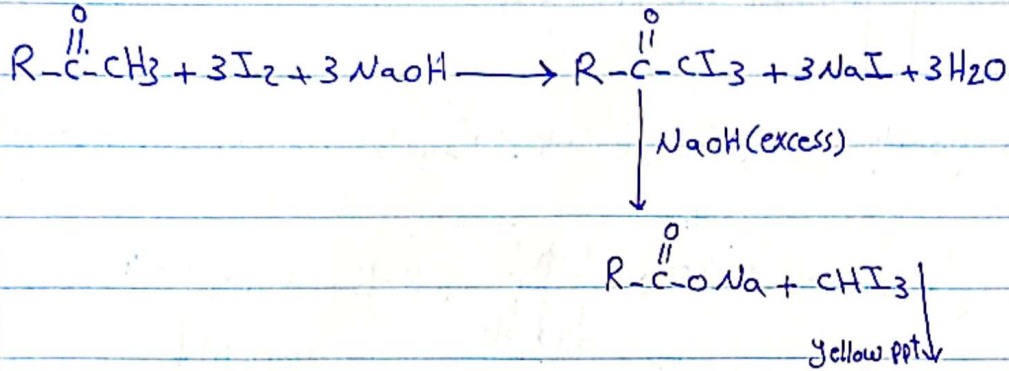 O O
|| ||
R-C-CH3 + 3I2 + 3 NaOH ⟶ R-C-CI3 + 3NaI + 3H2O
↓ NaOH (excess)
O
||
R-C-O Na + CHI3 ↓
yellow ppt